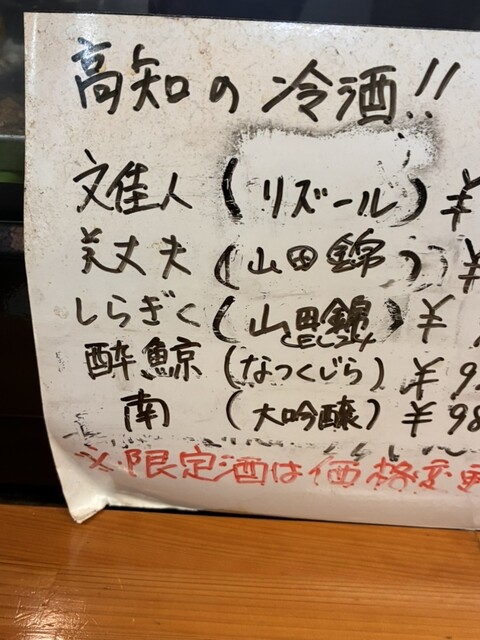 高知の冷酒!!
文佳人(リズール)¥
美丈夫(山田錦)¥
しらぎく(山田錦)¥
CEL24
酔鯨(なつくじら)¥9
南(大吟醸)¥98
※限定酒は価格変更